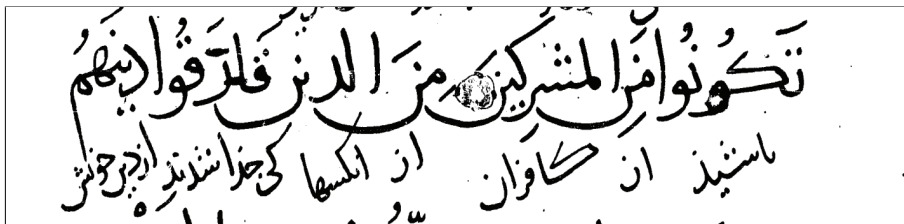 تَكُونُوا مِنَ المُشرِكِينَ مِنَ الَّذِينَ فَارَقُوا دِينَهُم
باشیذ از کافران از انکسها کی جذا شدند از دین خویش